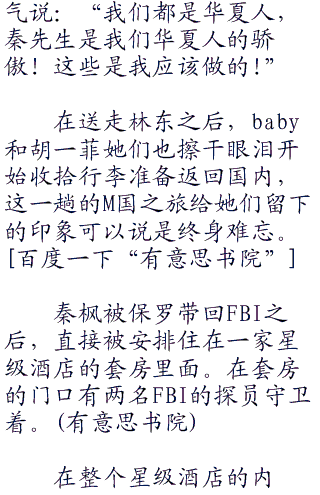 气说：“我们都是华夏人，
秦先生是我们华夏人的骄
傲！这些是我应该做的！”
在送走林东之后，baby
和胡一菲她们也擦干眼泪开
始收拾行李准备返回国内，
这一趟的M国之旅给她们留下
的印象可以说是终身难忘。
[百度一下“有意思书院”]
秦枫被保罗带回FBI之
后，直接被安排住在一家星
级酒店的套房里面。在套房
的门口有两名FBI的探员守卫
着。(有意思书院)
在整个星级酒店的内